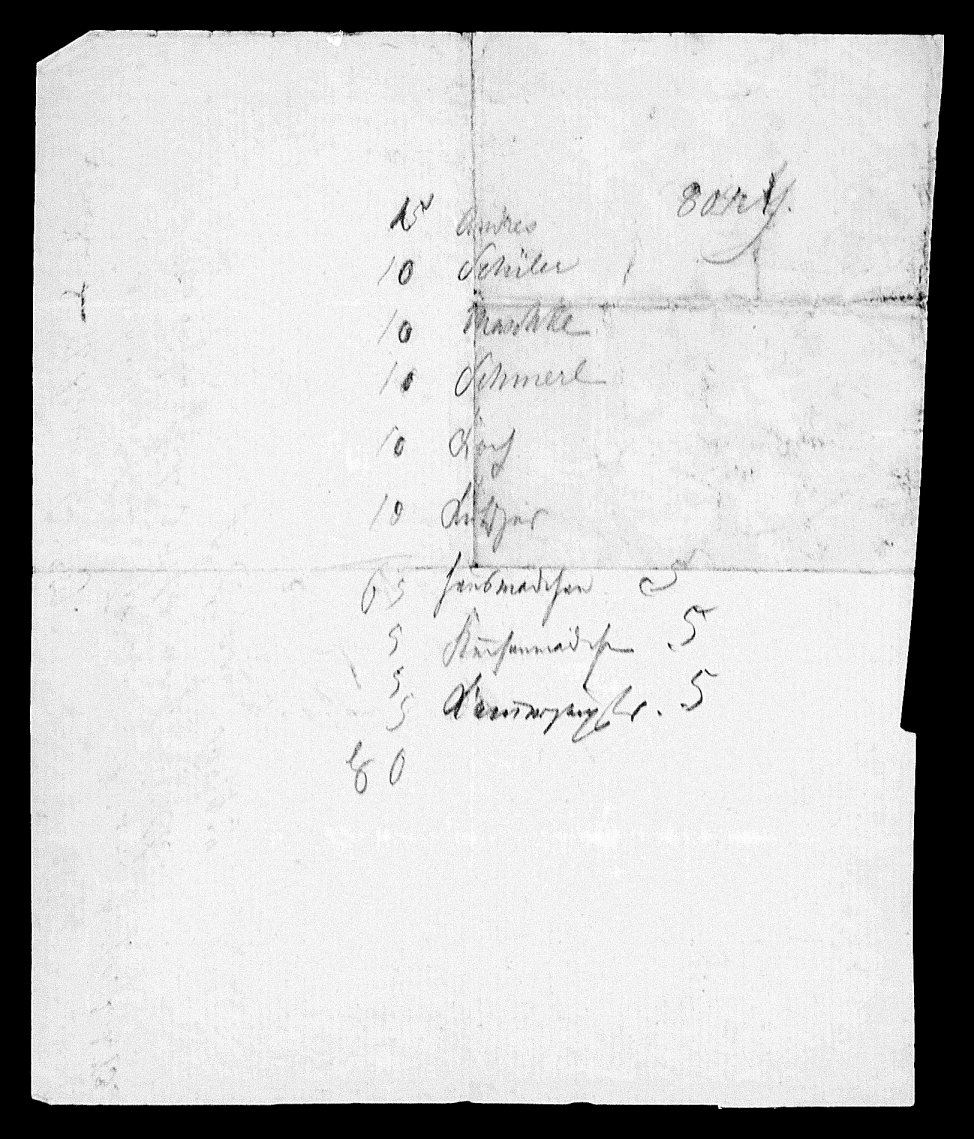 80
15 Andres
10 Schüler
10 Maschke
10 Schmerl
10 Koch
10
65 Hausmädchen 5
5 Küchenmädchen 5
5
5 5
80